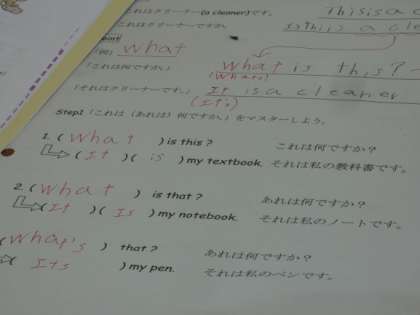 これはクリーナー(a cleaner)です。 This is a c
これはクリーナーですか。 Is this a cle
point
(例) What
「これは何ですか。」 What is this?
(What's)
「それはクリーナーです。」 It is a cleaner
(It's)
Step1 「これは(あれは)何ですか。」をマスターしよう。
1. ( What ) is this? これは何ですか？
( It )( is ) my textbook. それは私の教科書です。
2. ( What ) is that? あれは何ですか？
( It )( Is ) my notebook. それは私のノートです。
( What's ) that? あれは何ですか？
( Its ) my pen. それは私のペンです。